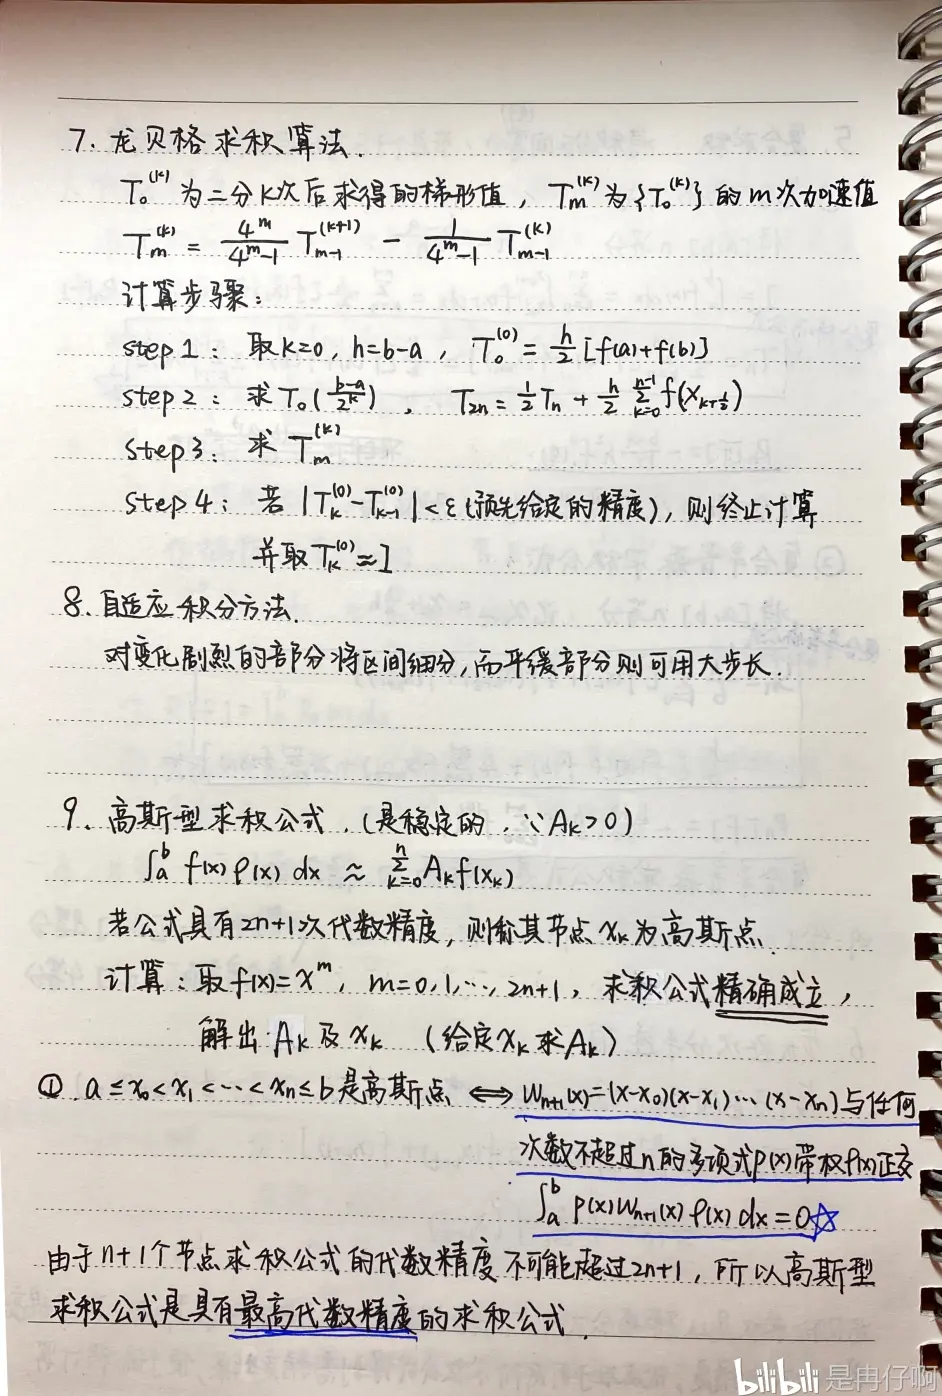 7. 龙贝格求积算法.
T₀⁽ᵏ⁾ 为二分K次后求得的梯形值, Tₘ⁽ᵏ⁾为{T₀⁽ᵏ⁾}的m次加速值
Tₘ⁽ᵏ⁾ = 4ᵐ/(4ᵐ-1) Tₘ₋₁⁽ᵏ⁺¹⁾ - 1/(4ᵐ-1) Tₘ₋₁⁽ᵏ⁾
计算步骤:
step 1: 取K=0, h=b-a, T₀⁽⁰⁾ = h/2 [f(a)+f(b)]
step 2: 求T₀((b-a)/2ᵏ), T₂ₙ = 1/2 Tₙ + h/2 Σ_{k=0}^{n-1} f(x_{k+1/2})
step 3: 求 Tₘ⁽ᵏ⁾
step 4: 若 |Tₖ⁽⁰⁾-Tₖ₋₁⁽⁰⁾| < ε (预先给定的精度), 则终止计算
并取Tₖ⁽⁰⁾≈I
8. 自适应积分方法.
对变化剧烈的部分将区间细分,而平缓部分则可用大步长.
9. 高斯型求积公式. (是稳定的, ∵Aₖ>0)
∫ₐᵇ f(x)ρ(x) dx ≈ Σ_{k=0}^{n} Aₖf(xₖ)
若公式具有2n+1次代数精度, 则称其节点xₖ为高斯点.
计算: 取f(x)=xᵐ, m=0,1,…,2n+1, 求积公式精确成立,
解出Aₖ及xₖ (给定xₖ求Aₖ)
① a≤x₀<x₁<…<xₙ≤b是高斯点 ⟺ Wₙ₊₁(x)=(x-x₀)(x-x₁)…(x-xₙ)与任何
次数不超过n的多项式p(x)带权ρ(x)正交
∫ₐᵇ p(x)Wₙ₊₁(x)ρ(x)dx=0☆
由于n+1个节点求积公式的代数精度不可能超过2n+1, 所以高斯型
求积公式是具有最高代数精度的求积公式.
bilibili 是冉仔啊